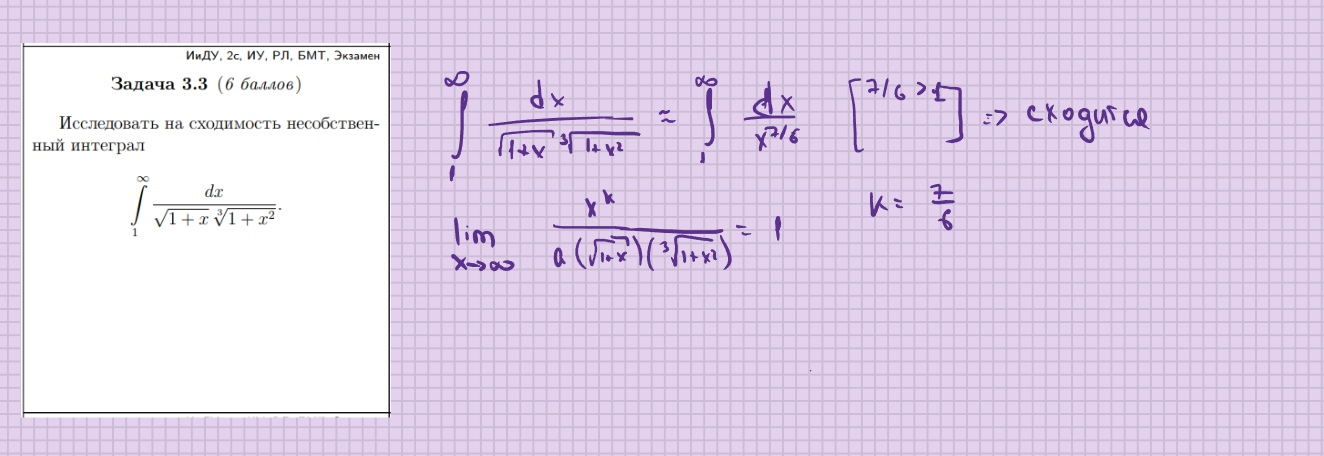 ИиДУ, 2с, ИУ, РЛ, БМТ, Экзамен
Задача 3.3 (6 баллов)
Исследовать на сходимость несобствен-
ный интеграл
∫₁^∞ dx / (√(1+x) ∛(1+x²)).
∫₁^∞ dx / (√(1+x) ∛(1+x²)) ≈ ∫₁^∞ dx / x^(7/6) [7/6 > 1] => сходится
lim x→∞ x^k / (a (√(1+x)) (∛(1+x²))) = 1 k = 7/6